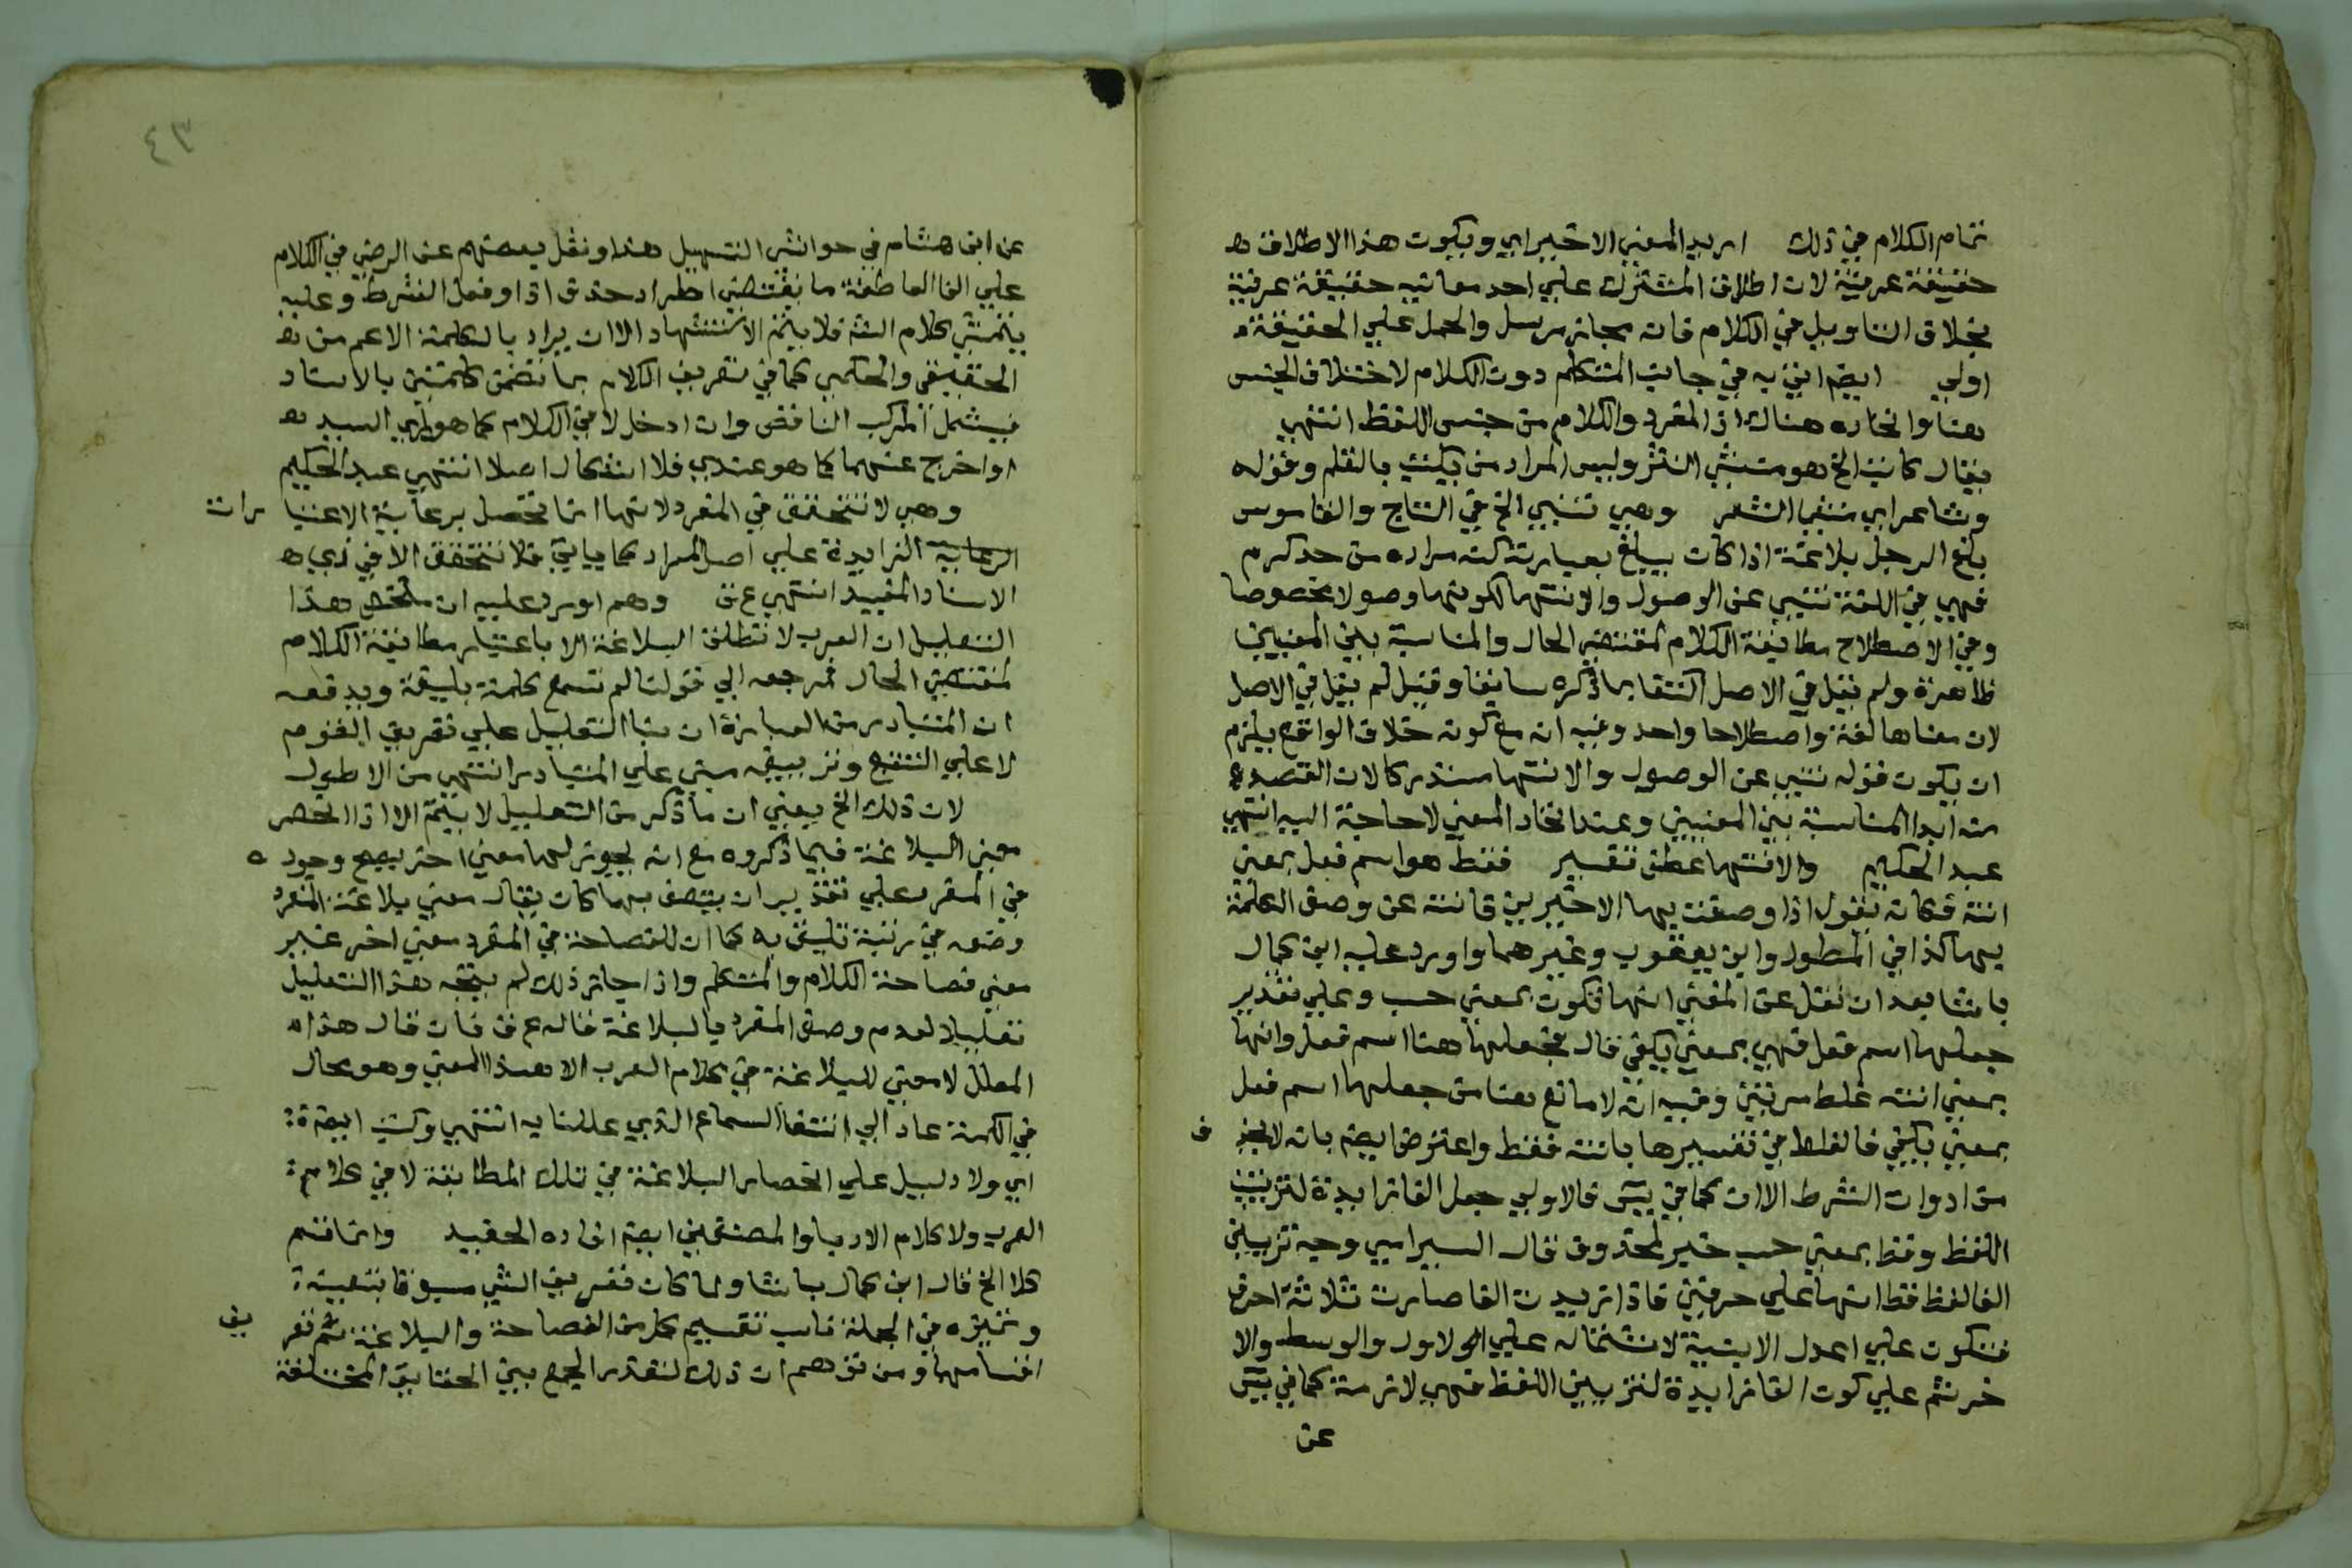 تمام الكلام في ذلك اريد المعني الاخير اي ويكون هذا الاطلاق ه
حقيقة عرفية لان اطلاق المشترك علي احد معانيه حقيقة عرفية
بخلاف التاويل في الكلام فانه مجاز مرسل والحمل علي الحقيقة
اولي ايضا اتي به في جانب المتكلم دون الكلام لاختلاف الجنس
هنا واتحاده هناك اذ المفرد والكلام من جنس اللفظ انتهي
يقال كاتب الخ هو منشي النثر وليس المراد من يكتب بالقلم وقوله
وشاعر اي منشي الشعر وهي تنبي الخ في التاج والقاموس
بلغ الرجل بلاغة اذا كان يبلغ بعبارته كنه مراده من حد كرم
فهي في اللغة تنبي عن الوصول والانتها لكونها وصولا مخصوصا
وفي الاصطلاح مطابقة الكلام لمقتضي الحال والمناسبة بين المعنيين
ظاهرة ولم يقل في الاصل اكتفا بما ذكره سابقا وقيل لم يقل في الاصل
لان معناها لغة واصطلاحا واحد وفيه انه مع كونه خلاف الواقع يلزم
ان يكون قوله تنبي عن الوصول والانتها مستدركا لان القصد
منه ابدا المناسبة بين المعنيين وعند اتحاد المعني لا حاجة اليه انتهي
عبد الحكيم والانتها عطف تفسير فقط هو اسم فعل بمعني
انته فكانه يقول اذا وصفت بها الاخيرين فانته عن وصف الكلمة
بها كذا في المطول وابن يعقوب وغيرهما واورد عليه ابن كمال
باشا بعد ان نقل عن المغني انها تكون بمعني حسب وعلي تقدير
جعلها اسم فعل فهي بمعني يكفي قال فجعلها هنا اسم فعل وانها
بمعني انته غلط مرتين وفيه انه لا مانع هنا من جعلها اسم فعل
بمعني يكفي فالغلط في تفسيرها بانته فقط واعترض ايضا بانه لا ف
من ادوات الشرط الا ان كما في يس فالاولي جعل الفا زايدة لتزيين
اللفظ وقط بمعني حسب خبر لمحذوف قال السيرامي وجه تزيين
الفا لفظ قط انها علي حرفين فاذا زيدت الفا صارت ثلاثة احرف
فتكون علي اعدل الابنية لاشتماله علي الاول والوسط والا
خر ثم علي كون الفا زايدة لتزيين اللفظ فهي لازمة كما في يس
عن
٤٣
عن ابن هشام في حواشي التسهيل هذا ونقل بعضهم عن الرضي في الكلام
علي الفا العاطفة ما يقتضي اطراد حذف اذا وفعل الشرط وعليه
يتمشي كلام الش فلا يتم الاستشهاد الا ان يراد بالكلمة الاعم من ه
الحقيقي والحكمي كما في تعريف الكلام بما تضمن كلمتين بالاسناد
فيشمل المركب الناقص وان ادخل لا في الكلام كما هو راي السيد ه
او اخرج عنهما كما هو عندي فلا اشكال اصلا انتهي عبد الحكيم
وهي لا تتحقق في المفرد لانها انما تحصل برعاية الاعتبا رات
الزايدة علي اصل المراد كما ياتي فلا تتحقق الا في ذي ه
الاسناد المفيد انتهي ع ق وهم اورد عليه ان ملخص هذا
التعليل ان العرب لا تطلق البلاغة الا باعتبار مطابقة الكلام
لمقتضي الحال فمرجعه الي قولنا لم تسمع كلمة بليغة ويدفعه
ان المتبادر من العبارة ان بنا التعليل علي تعريف القوم
لا علي التتبع وتزييفه مبني علي المتبادر انتهي من الاطول
لان ذلك الخ يعني ان ما ذكر من التعليل لا يتم الا اذا انحصر
معني البلاغة فيما ذكروه مع انه يجوز لها معني اخر يصح وجوده
في المفرد علي تقدير ان يتصف بها كان يقال معني بلاغة المفرد
وضعه في رتبة تليق به كما ان للفصاحة في المفرد معني اخر غير
معني فصاحة الكلام والمتكلم واذا جاز ذلك لم يتجه هذا التعليل
تعليلا لعدم وصف المفرد بالبلاغة قاله ع ق فان قال هذا
المعلل لا معني للبلاغة في كلام العرب الا هذا المعني وهو محال
في الكلمة عاد الي انتفا السماع الذي عللنا به انتهي وكتب ايضا
اي ولا دليل علي انحصار البلاغة في تلك المطابقة لا في كلام
العرب ولا كلام الادبا والمصنفين ايضا افاده الحفيد وانما قسم
كلا الخ قال ابن كمال باشا ولما كان تعريف الشي مسبوقا بتعينه
وتميزه في الجملة ناسب تقسيم كل من الفصاحة والبلاغة ثم تعر يف
اقسامها ومن توهم ان ذلك لتعذر الجمع بين الحقايق المختلفة